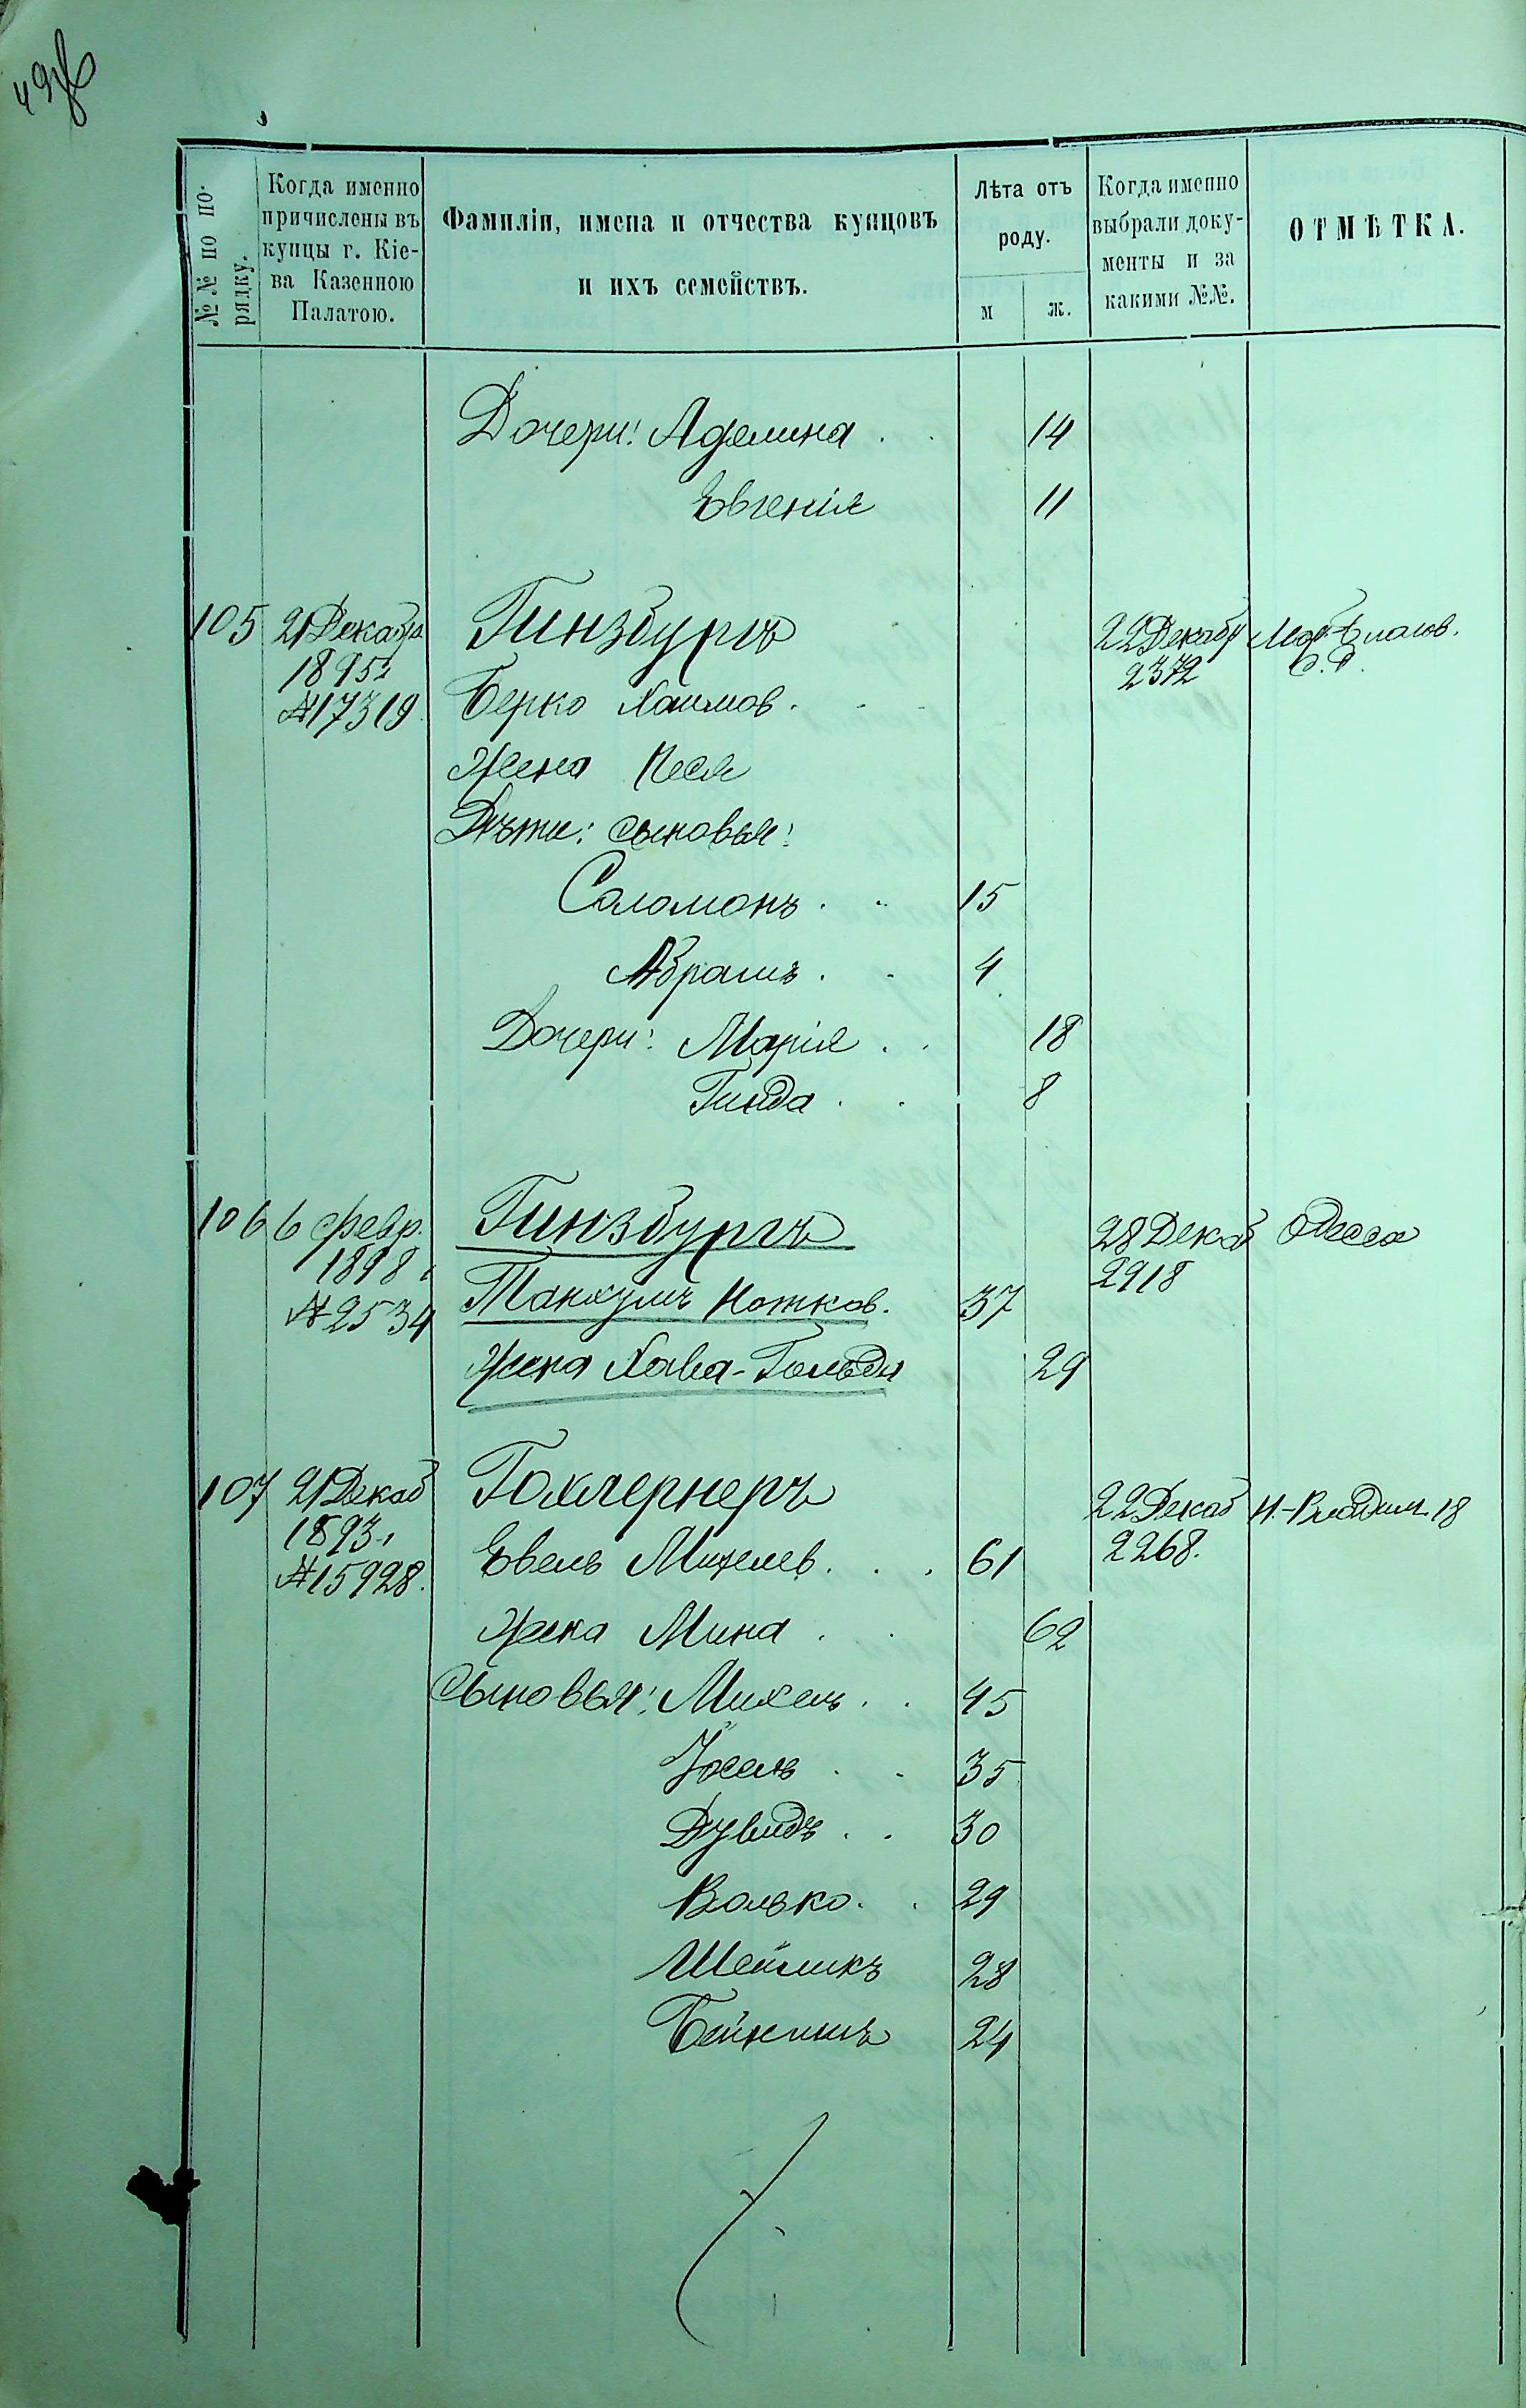 49об
№№ по порядку.
Когда именно причислены въ купцы г. Кіева Казенною Палатою.
Фамиліи, имена и отчества купцовъ и ихъ семействъ.
Лѣта отъ роду.
м ж.
Когда именно выбрали документы и за какими №№.
ОТМѢТКА.
Дочери: Аделина . . 14
Евгенія 11
105 21 Декабря Гинзбургъ 22 Декабр
1895 г. 2372
№ 17319 Берко Хаимов.
Жена Песя
Дѣти: сыновья:
Соломонъ . . 15
Абрамъ . . 4
Дочери: Марія . . 18
Гинда . . 8
106 6 февр. Гинзбургъ 28 Декаб Одесса
1898 г. 2918
№ 2534 Танхумъ Нотков. 37
Жена Хава-Гольда 29
107 21 Декаб Гохлернеръ 22 Декаб Н.-Владим. 18
1893 г. 2268.
№ 15928. Евель Михелев. . . 61
Жена Мина . . 62
Сыновья: Михель . . 45
Іосель . . 35
Дувидъ . . 30
Волько . . 29
Шейликъ 28
Бейнишъ 24